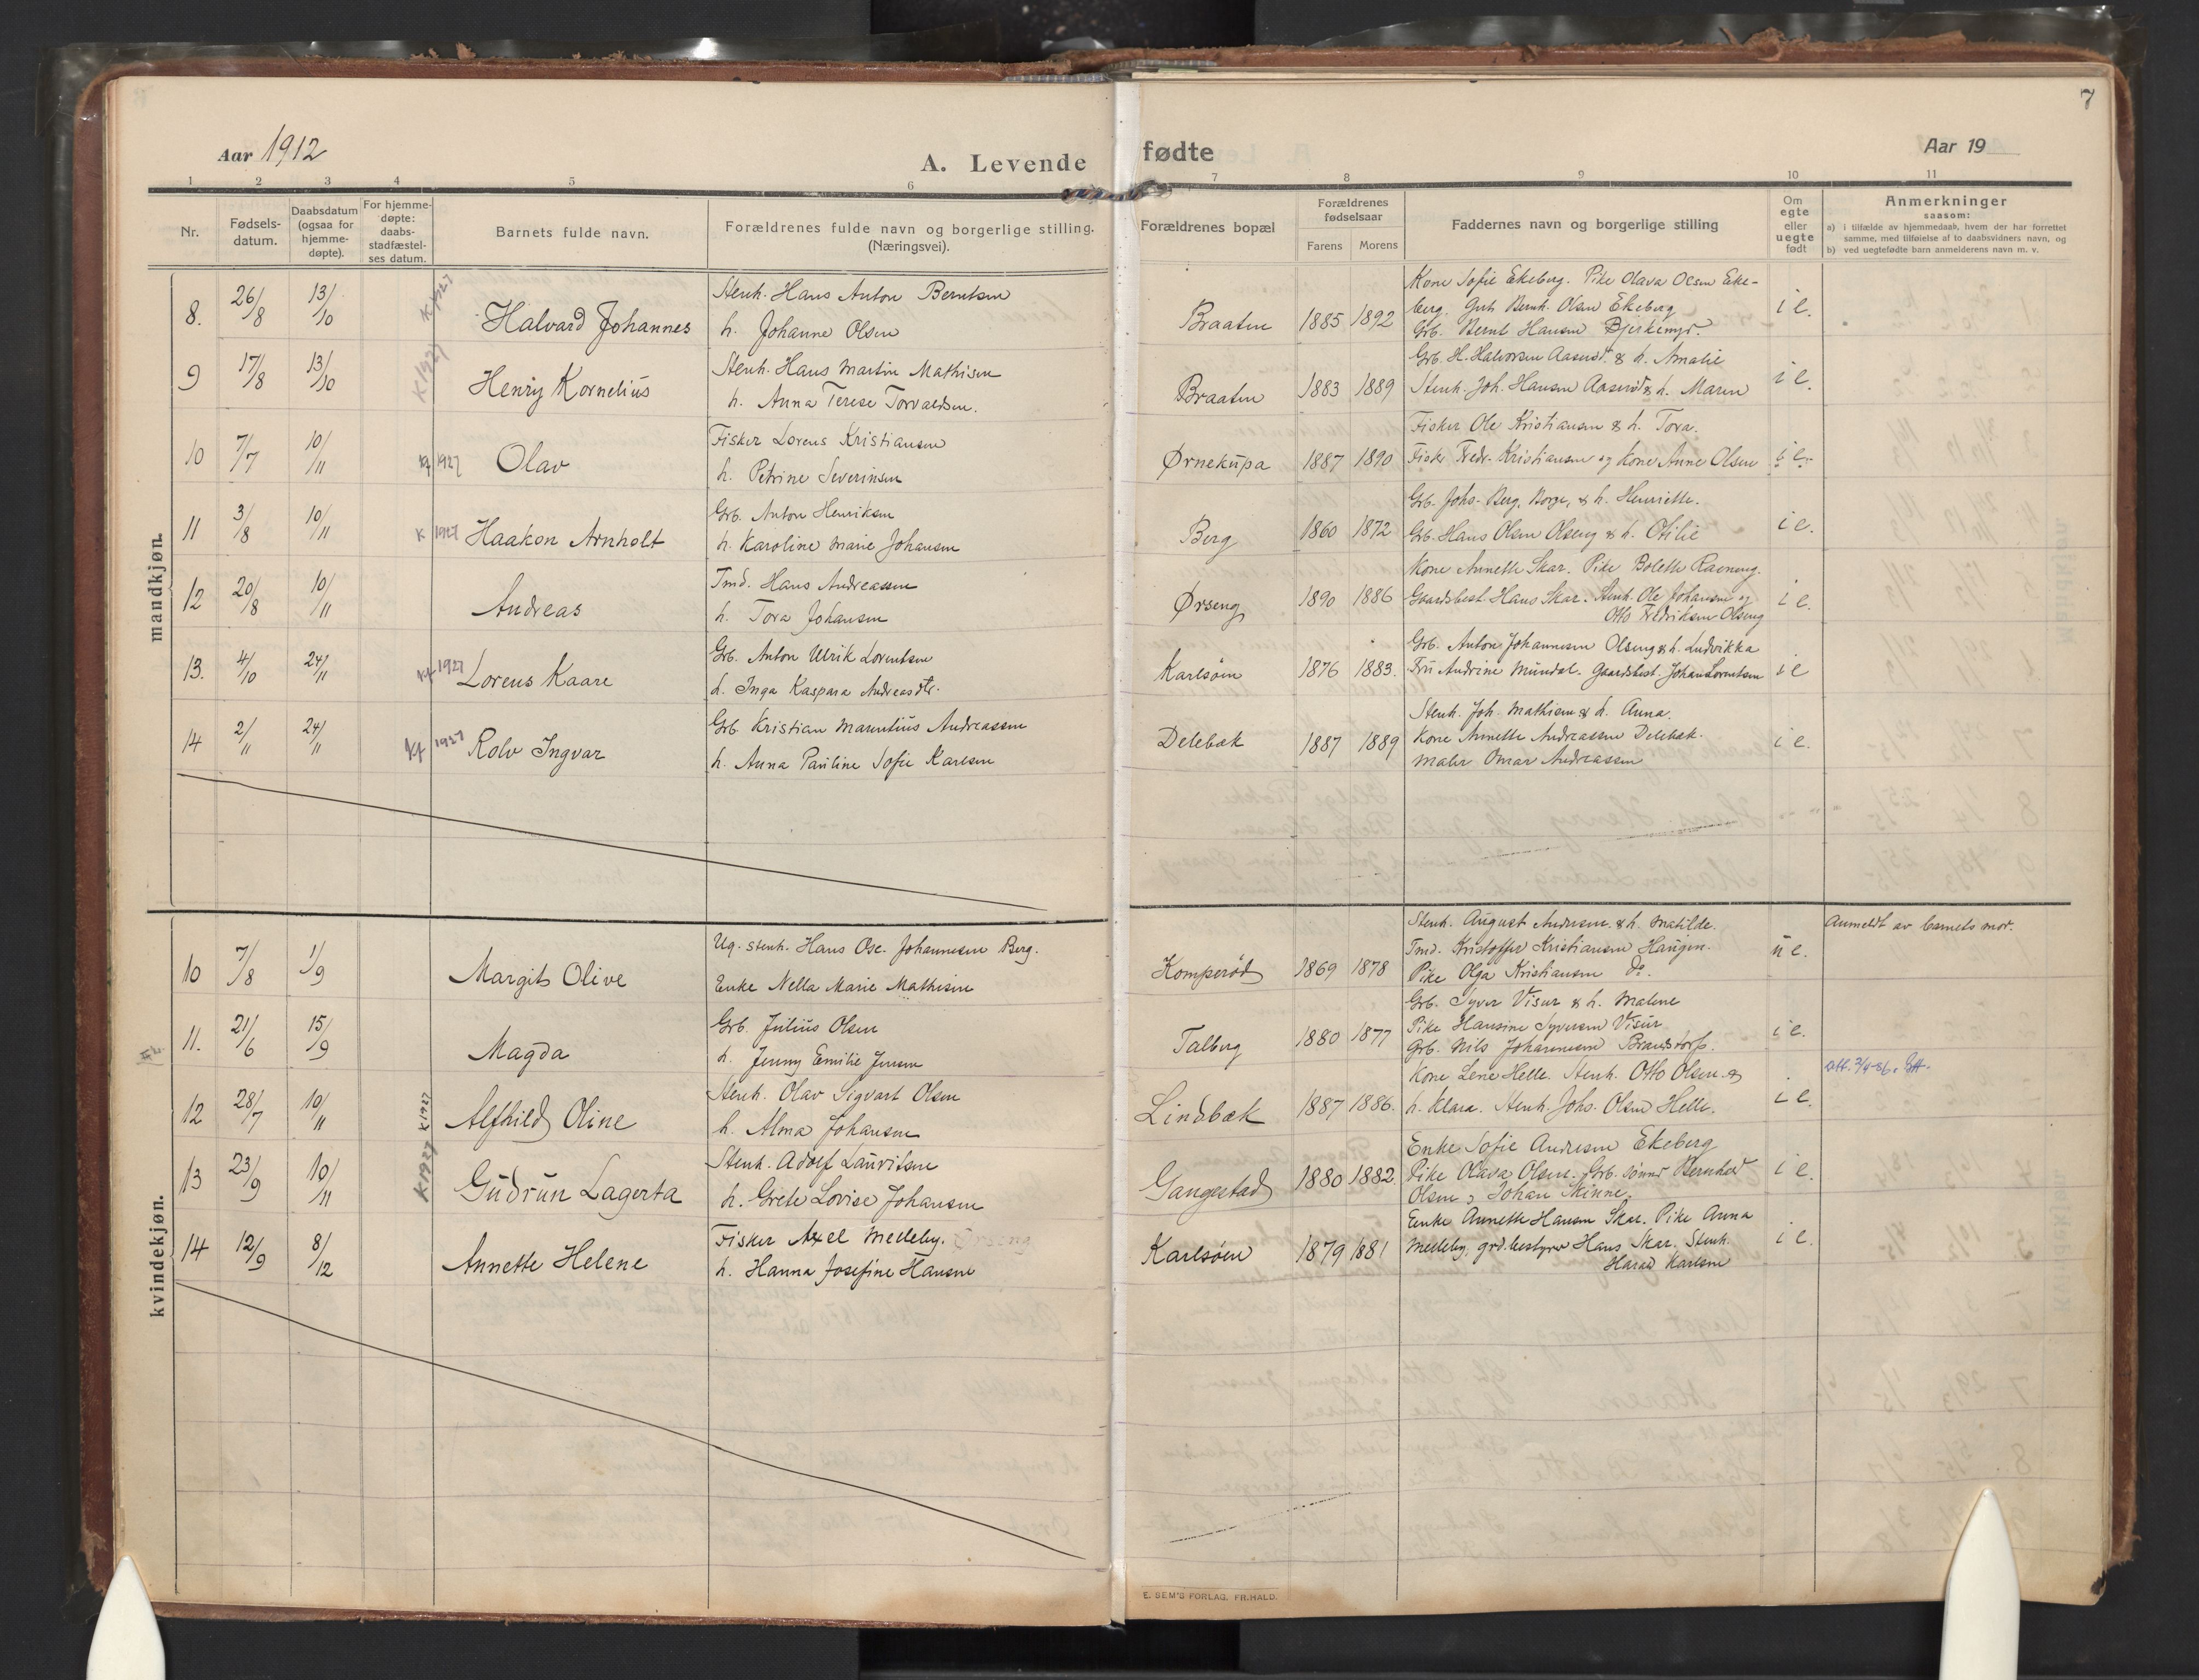 7
Aar 1912
A. Levende fødte
Aar 19
1 2 3 4 5 6 7 8 9 10 11
Nr.
Fødsels-
datum.
Daabsdatum
(ogsaa for
hjemme-
døpte).
For hjemme-
døpte:
daabs-
stadfæstel-
ses datum.
Barnets fulde navn.
Forældrenes fulde navn og borgerlige stilling.
(Næringsvei).
Forældrenes bopæl
Forældrenes
fødselsaar
Farens Morens
Faddernes navn og borgerlige stilling
Om
egte
eller
uegte
født
Anmerkninger
saasom:
a) i tilfælde av hjemmedaab, hvem der har forrettet
samme, med tilføielse af to daabsvidners navn, og
b) ved uegtefødte barn anmelderens navn m. v.
mandkjøn.
8. 26/8 13/10 K 1927 Halvard Johannes
Stenh. Hans Anton Berntsen
h. Johanne Olsen
Braaten 1885 1892
Kone Sofie Ekeberg. Pike Olava Olsen Eke-
berg. Gut Bernh. Olsen Ekeberg
Grb. Bernt Hansen Bjerkemyr.
i e.
9 17/8 13/10 K 1927 Henry Kornelius
Stenh. Hans Martin Mathisen
h. Anna Terese Torvaldsen.
Braaten 1883 1889
Grb. H. Halvorsen Aaserød & h. Amalie
Stenh. Joh. Hansen Aaserød & h. Maren
i e.
10 7/7 10/11 Kf 1927 Olav
Fisker Lorens Kristiansen
h. Petrine Severinsen
Ørnekupa 1887 1890
Fisker Ole Kristiansen & h. Tora.
Fisker Fredr. Kristiansen og Kone Anne Olsen
i e.
11 3/8 10/11 K 1927 Haakon Arnholt
Grb. Anton Henriksen
h. Karoline Marie Johansen
Berg 1860 1872
Grb. Johs. Berg, Borge, & h. Henriette.
Grb. Hans Olsen Olseng & h. Otilie
i e.
12 20/8 10/11 Andreas
Tmd. Hans Andreassen
h. Tora Johansen
Ørseng 1890 1886
Kone Annette Skar. Pike Bolette Ravneng.
Gaardsbest. Hans Skar. Stenh. Ole Johansen og
Otto Fredriksen Olseng
i e.
13. 4/10 24/11 Kf 1927 Lorens Kaare
Grb. Anton Ulrik Lorentsen
h. Inga Kaspara Andreasdtr.
Karlsøen 1876 1883.
Grb. Anton Johannesen Olseng & h. Ludvikka
Fru Andrine Mündal. Gaardsbest. Johan Lorentsen
i e
14 2/11 24/11 Kf 1927 Rolv Ingvar
Grb. Kristian Marentius Andreassen
h. Anna Pauline Sofie Karlsen
Delebæk 1887 1889
Stenh. Joh. Mathisen & h. Anna.
Kone Annette Andreassen Delebæk.
Maler Omar Andreassen
i e.
kvindekjøn.
10 7/8 1/9 Margit Olive
Ug. stenh. Hans Osc. Johannesen Berg.
Enke Nella Marie Mathisen
Komperød 1869 1878
Stenh. August Andresen & h. Matilde.
Tmd. Kristoffer Kristiansen Haugen.
Pike Olga Kristiansen do.
u e.
Anmeldt av barnets mor.
11. 21/6 15/9 Magda
Grb. Julius Olsen
h. Jenny Emilie Jensen
Talberg 1880 1877
Grb. Syver Visur & h. Malene
Pike Hansine Syversen Visur
Grb. Nils Johannesen Brandstorp.
i e.
12 28/7 10/11 K 1927 Alfhild Oline
Stenh. Olav Sigvart Olsen
h. Alma Johansen
Lindbæk 1887 1886.
Kone Lene Helle. Stenh. Otto Olsen &
h. Klara. Stenh. Johs. Olsen Helle.
i e.
13 23/9 10/11 K 1927 Gudrun Lagerta
Stenh. Adolf Lauritsen
h. Grete Lovise Johansen
Gangestad 1880 1882.
Enke Sofie Andresen Ekeberg
Pike Olava Olsen. Grb. sønner Bernhard
Olsen & Johan Skinne.
i e.
14 12/9 8/12 Annette Helene
Fisker Axel Melleby. Ørseng
h. Hanna Josefine Hansen
Karlsøen 1879 1881
Enke Annette Hansen Skar. Pike Anna
Melleby, grd.bestyrer Hans Skar. Stenh.
Harald Karlsen
i e.
E. SEM'S FORLAG. FR.HALD.